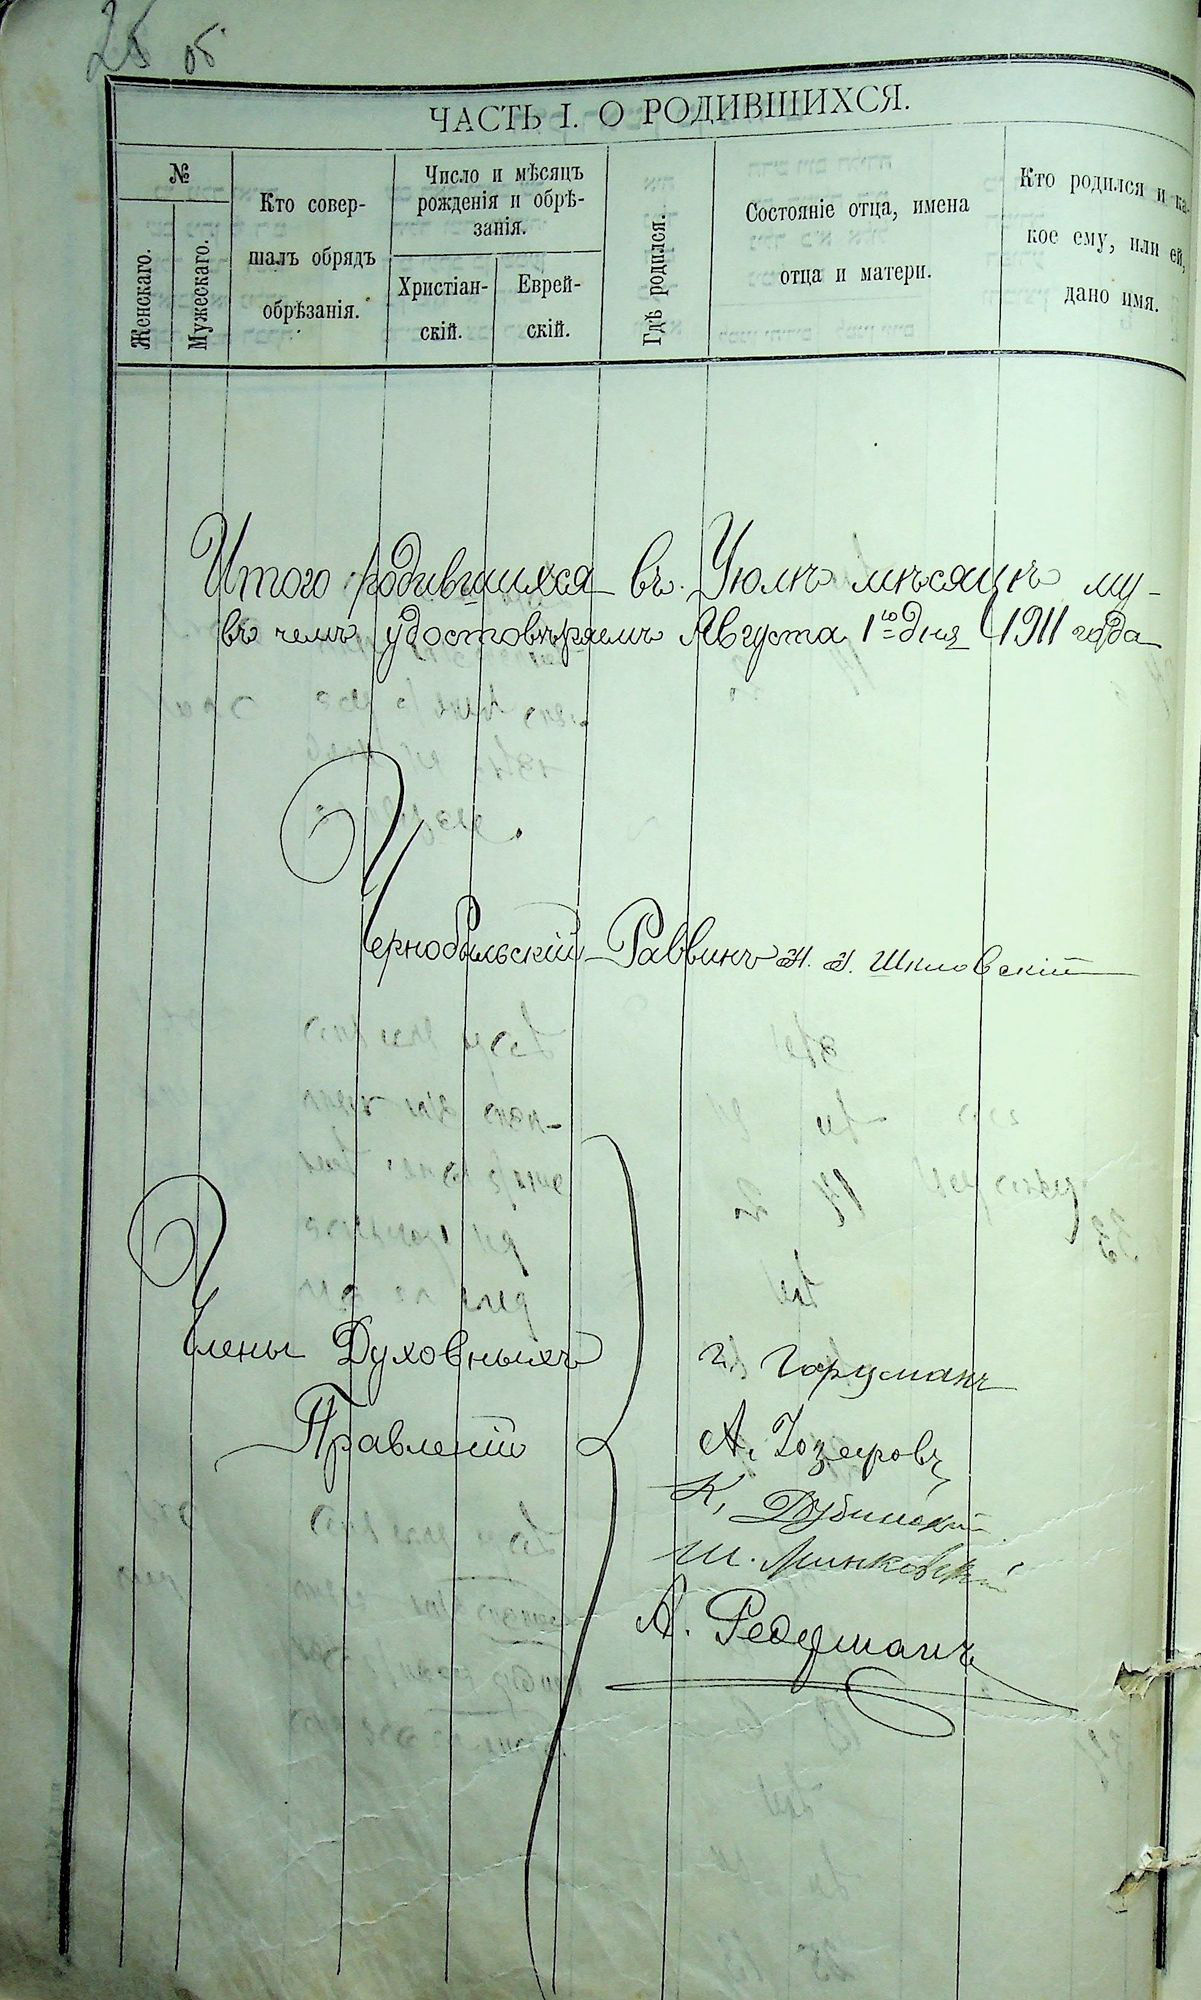 25 об
ЧАСТЬ I. О РОДИВШИХСЯ.
№
Женскаго.
Мужескаго.
Кто совер-
шалъ обрядъ
обрѣзанія.
Число и мѣсяцъ
рожденія и обрѣ-
занія.
Христіан-
скій.
Еврей-
скій.
Гдѣ родился.
Состояніе отца, имена
отца и матери.
Кто родился и ка-
кое ему, или ей,
дано имя.
Итого родившихся въ Іюлѣ мѣсяцѣ му-
въ чемъ удостовѣряемъ Августа 1го дня 1911 года
Чернобыльскій Раввинъ Н. І. Шкловскій
Члены Духовныхъ
Правленій
Г. Горцманъ
А. Іозефовъ
К. Дубинскій
Ш. Минковскій
А.